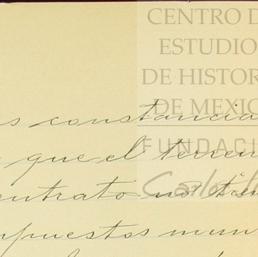 CENTRO D
ESTUDIO
DE HISTOR
DE MEXIC
FUNDACI
Carlos
s constancia
que el terren
ontrato no tien
mpuestos mun